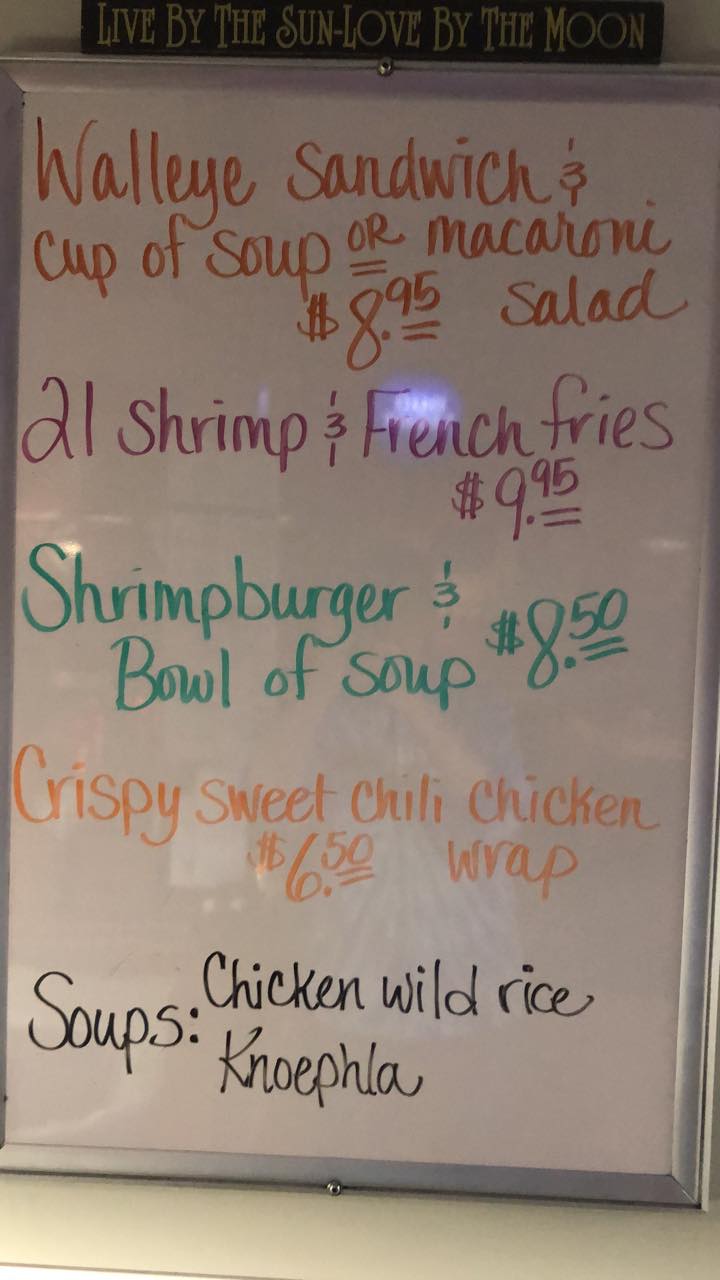 LIVE BY THE SUN-LOVE BY THE MOON
Walleye Sandwich &
cup of soup OR macaroni
$8.95 salad
21 Shrimp & French fries
$9.95
Shrimpburger &
Bowl of soup $8.50
Crispy sweet chili chicken
$6.50 wrap
Soups: Chicken wild rice
Knoephla